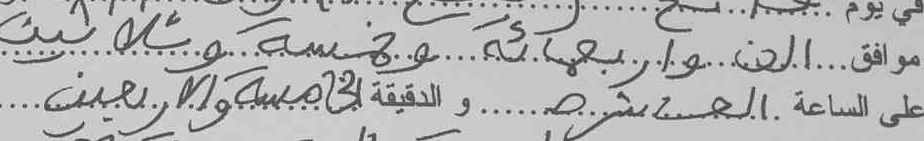 في يوم
موافق الف واربعمائة وخمسة وثلاثين
على الساعة العاشرة و الدقيقة الخامسة والاربعين